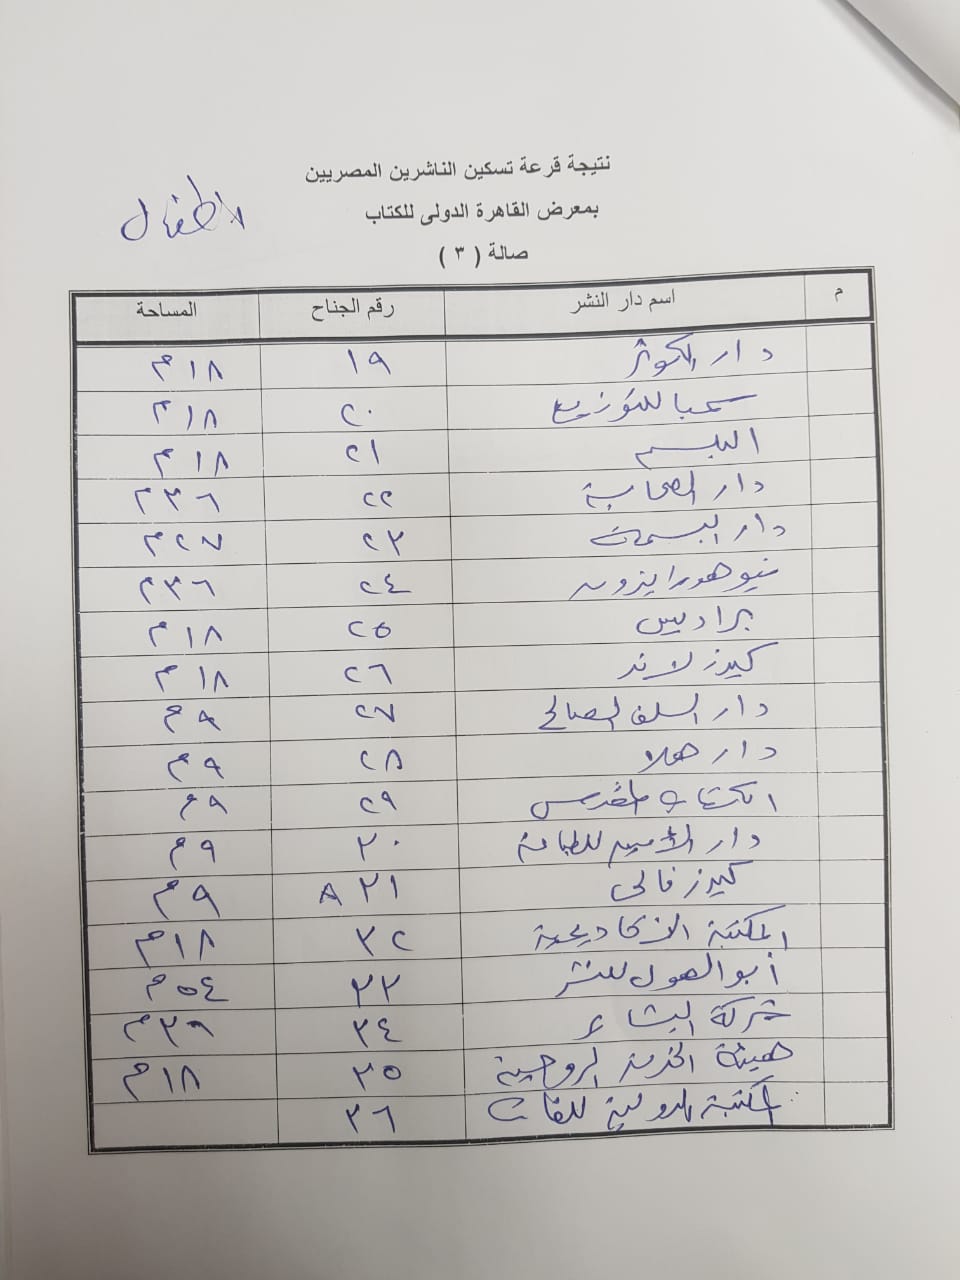 نتيجة قرعة تسكين الناشرين المصريين
بمعرض القاهرة الدولى للكتاب
صالة ( ٣ )
اطفال
م اسم دار النشر رقم الجناح المساحة
دار الكوثر ١٩ ١٨م
للتوزيع ٢٠ ١٨م
البلسم ٢١ ١٨م
دار الصحابة ٢٢ ٣٦م
دار البسمات ٢٣ ٢٧م
نيو هورايزون ٢٤ ٣٦م
براديس ٢٥ ١٨م
كيدز لاند ٢٦ ١٨م
دار السلف الصالح ٢٧ ٩م
دار هلا ٢٨ ٩م
٢٩ ٩م
دار الأمين للطباعة ٣٠ ٩م
كيدز فالى ٣١ A ٩م
المكتبة الاكاديمية ٣٢ ١٨م
أبو الهول للنشر ٣٣ ٥٤م
شركة ٣٤
هيئة الخدمة الروحية ٣٥ ١٨م
المكتبة الدولية للغات ٣٦